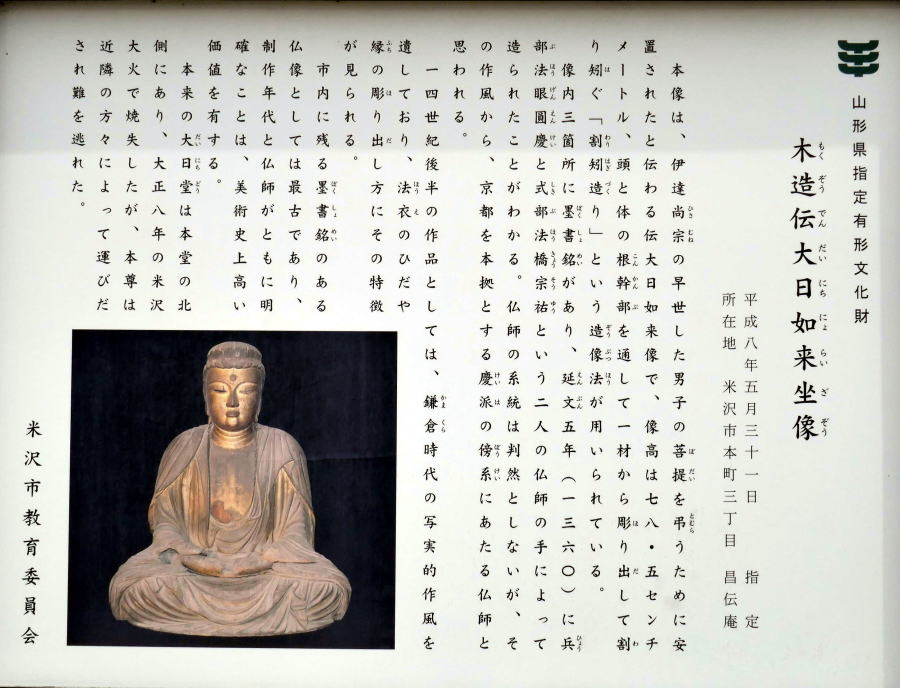 山形県指定有形文化財
木造伝大日如来坐像
もくぞうでんだいにちにょらいざぞう
平成八年五月三十一日　指定
所在地　米沢市本町三丁目　昌伝庵
本像は、伊達尚宗の早世した男子の菩提を弔うために安
置されたと伝わる伝大日如来像で、像高は七八・五センチ
メートル、頭と体の根幹部を通して一材から彫り出して割
り矧ぐ「割矧造り」という造像法が用いられている。
像内三箇所に墨書銘があり、延文五年（一三六〇）に兵
部法眼圓慶と式部法橋宗祐という二人の仏師の手によって
造られたことがわかる。仏師の系統は判然としないが、そ
の作風から、京都を本拠とする慶派の傍系にあたる仏師と
思われる。
一四世紀後半の作品としては、鎌倉時代の写実的作風を
遺しており、法衣のひだや
縁の彫り出し方にその特徴
が見られる。
市内に残る墨書銘のある
仏像としては最古であり、
制作年代と仏師がともに明
確なことは、美術史上高い
価値を有する。
本来の大日堂は本堂の北
側にあり、大正八年の米沢
大火で焼失したが、本尊は
近隣の方々によって運びだ
され難を逃れた。
米沢市教育委員会